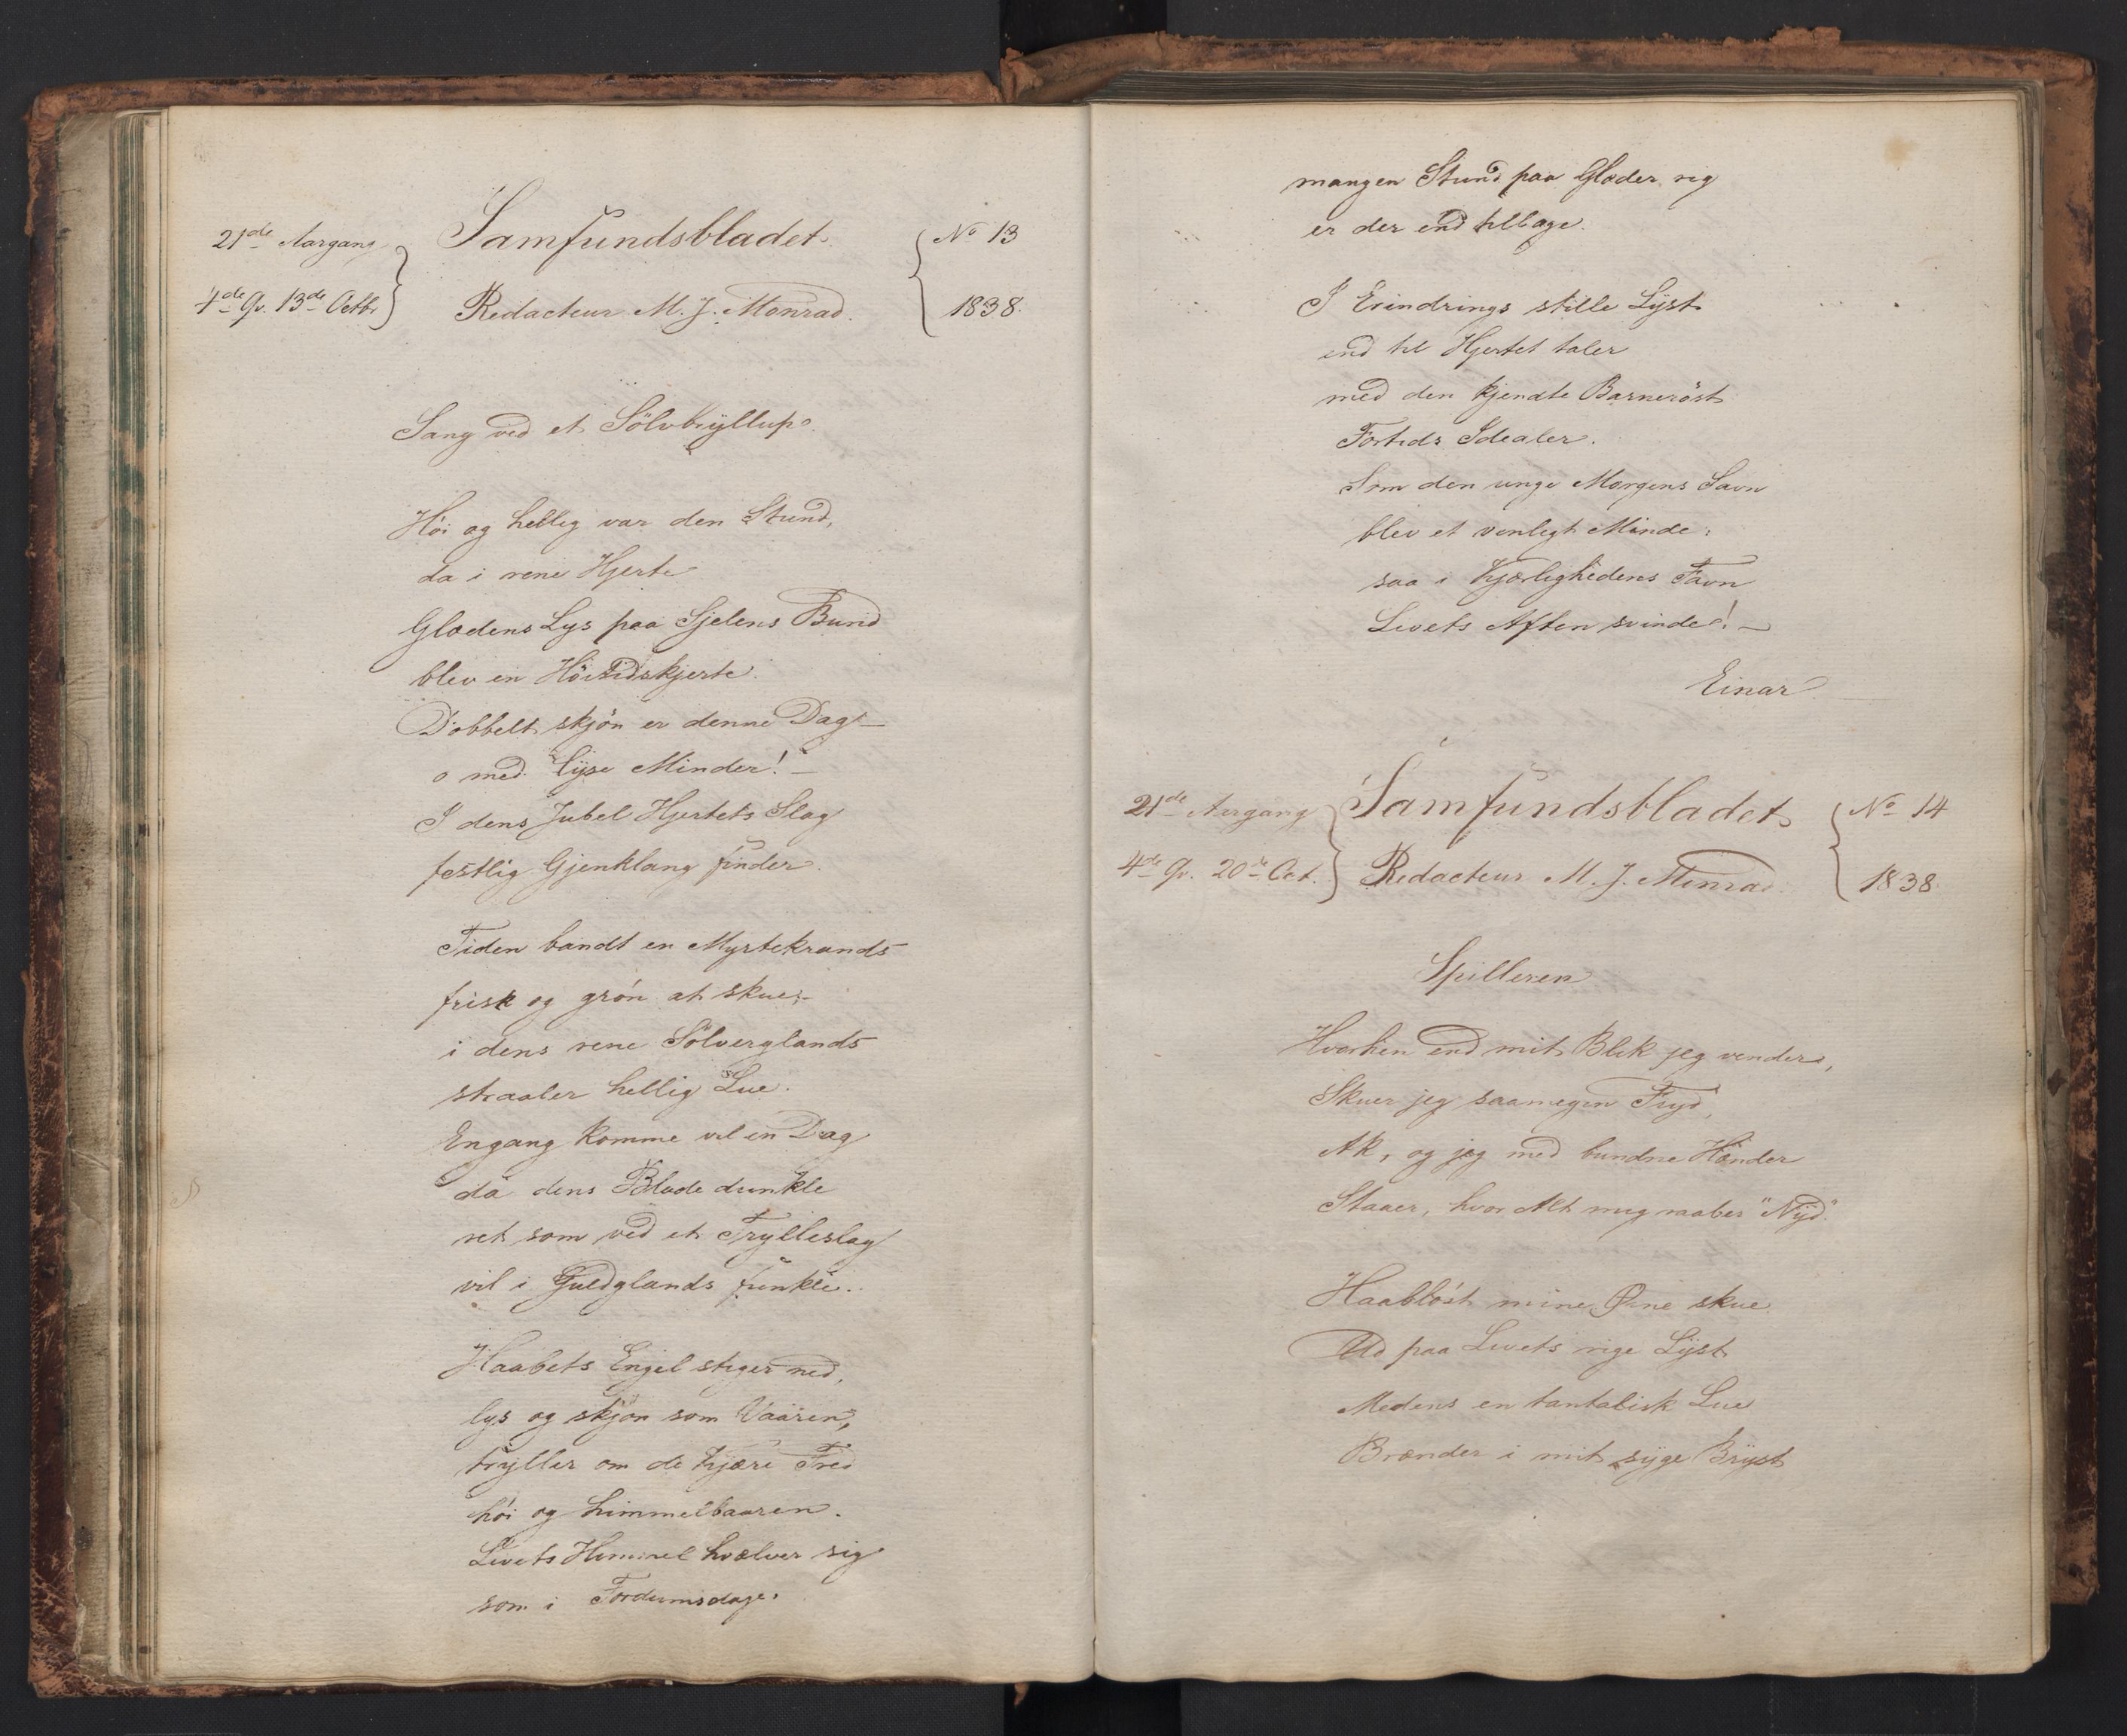 21de Aargang
4de Qv. 13de Octbr
Samfundsbladet
Redacteur M. J. Monrad.
No 13
1838.
Sang ved et Sölvbryllup.
Höi og hellig var den Stund,
da i rene Hjerte
Glædens Lys paa Sjelens Bund
blev en Höitidskjerte.
Dobbelt skjön er denne Dag –
o med lyse Minder! –
I dens Jubel Hjertets Slag
festlig Gjenklang finder.
Tiden bandt en Myrtekrands
frisk og grön at skue; –
i dens rene Sölverglands
straaler hellig Lue.
Engang komme vil en Dag
da dens Blade dunkle
ret som ved et Trylleslag
vil i Guldglands funkle.
Haabets Engel stiger ned,
lys og skjön som Vaaren,
tryller om de kjære Fred
höi og himmelbaaren.
Livets Himmel hvælver sig
som i Fordumsdage.
mangen Stund paa Glæder rig
er der end tilbage.
I Erindrings stille Lyst
end til Hjertet taler
med den kjendte Barneröst
Fortids Idealer.
Som den unge Morgens Savn
blev et venligt Minde:
saa i Kjærlighedens Favn
Livets Aften svinde! –
Einar
21de Aargang
4de Qv. 20de Oct.
Samfundsbladet
Redacteur M. J. Monrad.
No 14
1838.
Spilleren
Hvorhen end mit Blik jeg vender,
Skuer jeg saamegen Fryd,
Ak, og jeg med bundne Hænder
Staaer, hvor Alt mig raaber "Nyd."
Haablöst mine Øine skue
Ud paa Livets rige Lyst
Medens en tantalisk Lue
Brænder i mit syge Bryst